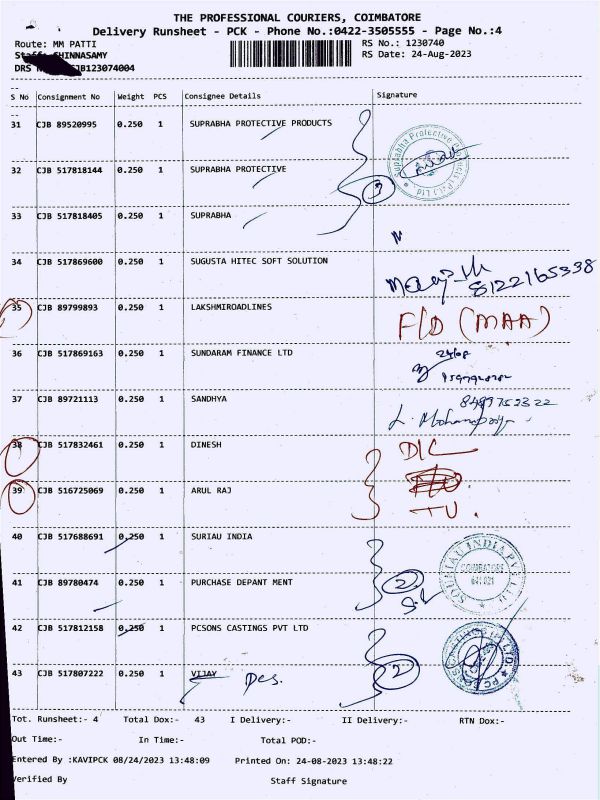 THE PROFESSIONAL COURIERS, COIMBATORE
Delivery Runsheet - PCK - Phone No.:0422-3505555 - Page No.:4
Route: MM PATTI RS No.: 1230740
CHINNASAMY RS Date: 24-Aug-2023
DRS CJB123074004
S No Consignment No Weight PCS Consignee Details Signature
31 CJB 89520995 0.250 1 SUPRABHA PROTECTIVE PRODUCTS
32 CJB 517818144 0.250 1 SUPRABHA PROTECTIVE
3
33 CJB 517818405 0.250 1 SUPRABHA
34 CJB 517869600 0.250 1 SUGUSTA HITEC SOFT SOLUTION
8122165338
35 CJB 89799893 0.250 1 LAKSHMIROADLINES F/D (MAA)
36 CJB 517869163 0.250 1 SUNDARAM FINANCE LTD 24/08
37 CJB 89721113 0.250 1 SANDHYA
38 CJB 517832461 0.250 1 DINESH D/L
39 CJB 516725069 0.250 1 ARUL RAJ
40 CJB 517688691 0.250 1 SURIAU INDIA
SOURIAU INDIA PVT LTD
COIMBATORE
641 021
41 CJB 89780474 0.250 1 PURCHASE DEPANT MENT 2
42 CJB 517812158 0.250 1 PCSONS CASTINGS PVT LTD
43 CJB 517807222 0.250 1 VIJAY Pcs. 2
Tot. Runsheet:- 4 Total Dox:- 43 I Delivery:- II Delivery:- RTN Dox:-
Out Time:- In Time:- Total POD:-
Entered By :KAVIPCK 08/24/2023 13:48:09 Printed On: 24-08-2023 13:48:22
Verified By Staff Signature